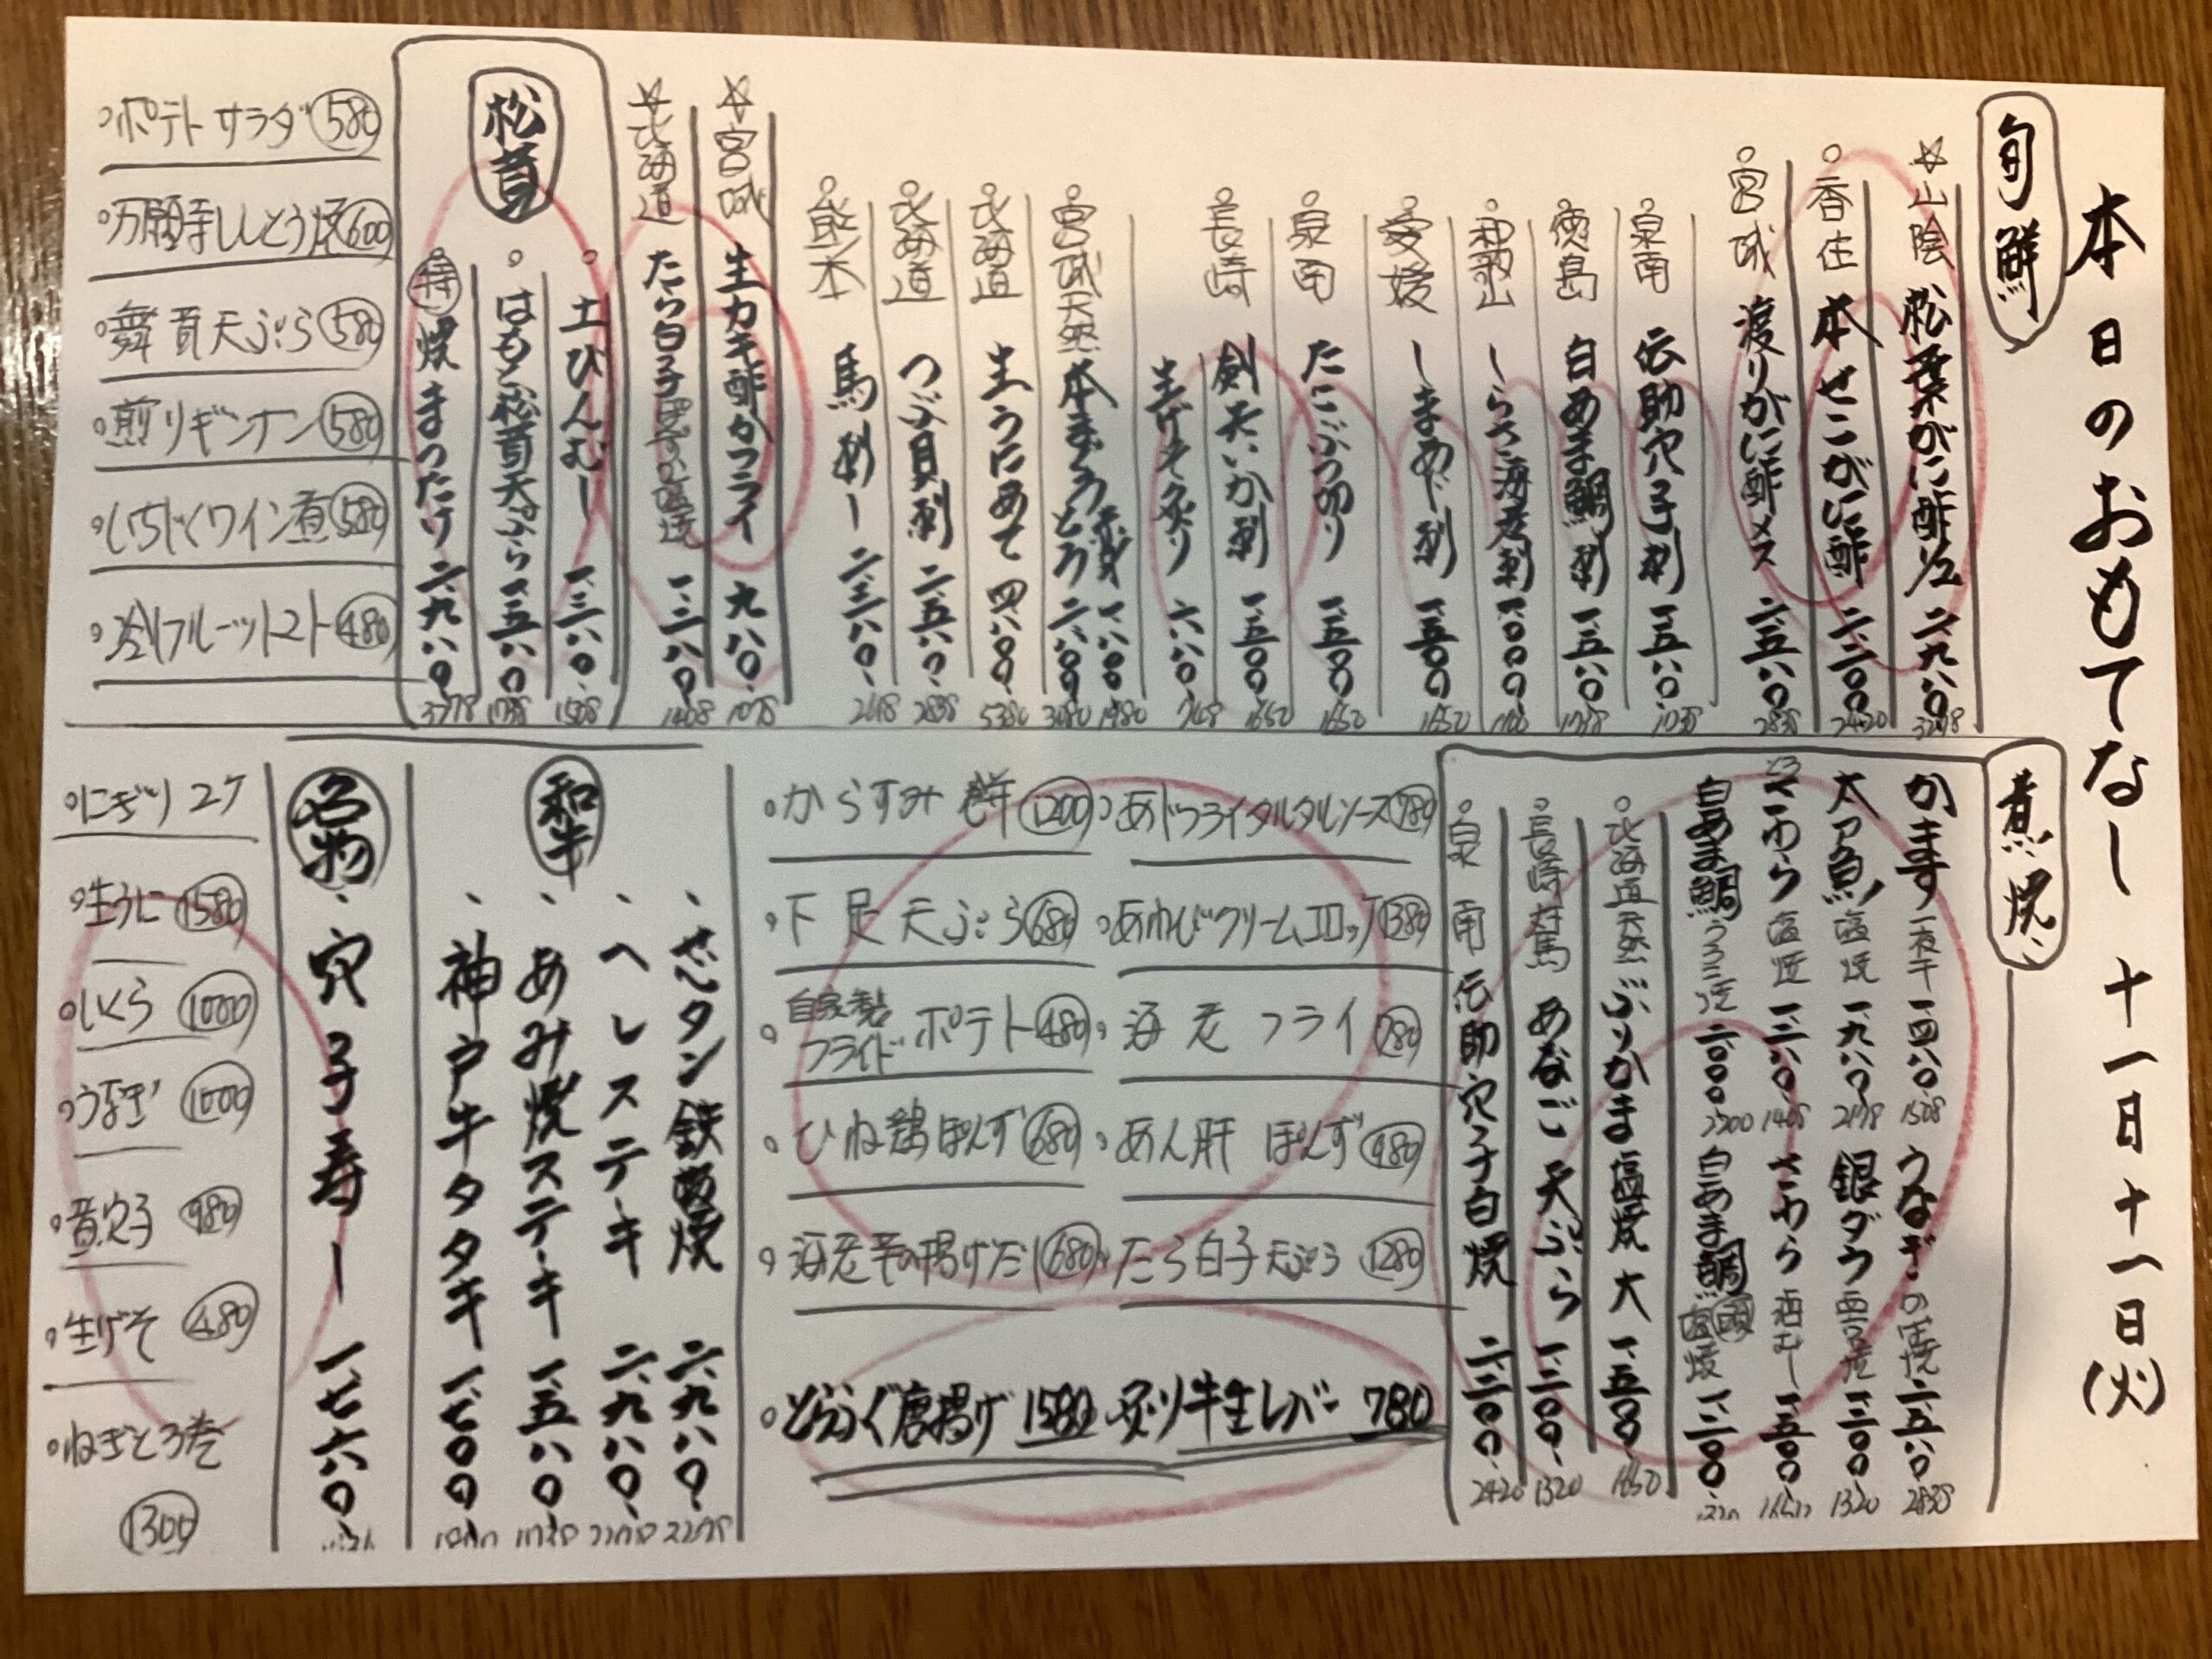 本日のおもてなし 十一月十一日(火)
旬鮮
☆山陰 松葉がに酢1/2 二、九八〇、 3278
香住 本せこがに酢 二、二〇〇 2420
宮城 渡りがに酢メス 二、五八〇、 2838
泉南 伝助穴子刺 一、五八〇、
徳島 白あま鯛刺 一、五八〇 1738
和歌山 しらさ海老刺 一、〇〇〇、 1100
愛媛 しまあじ刺 一、五〇〇 1650
泉南 たこぶつ切り 一、五〇〇、 1650
長崎 剣先いか刺 一、五〇〇、 1650
生げそ炙り 六八〇、 748
宮城天然 本まぐろ 赤身 一、八〇〇 1980
とろ 二、八〇〇 3080
北海道 生うにあて 四、八〇〇、
北海道 つぶ貝刺 二、五八〇、 2838
熊本 馬刺し 二、三八〇、 2618
☆宮城 生カキ酢かフライ 九八〇、 1078
☆北海道 たら白子ぽんずか塩焼 一、二八〇、 1408
松茸
土びんむし 一、三八〇、 1508
はもと松茸天ぷら 一、五八〇 1738
特 焼まつたけ 二、九八〇、
ポテトサラダ 580
万願寺ししとう焼 600
舞茸天ぷら 580
煎りギンナン 580
いちじくワイン煮 580
冷しフルーツトマト 480
煮、焼、
かます 一夜干 一、四八〇、 1508
太刀魚 塩焼 一、九八〇、 2178
とろさわら 塩焼 一、二八〇、 1408
白あま鯛 うろこ焼 二、〇〇〇 2200
うなぎの蒲焼 二、五八〇、 2838
銀ダラ 西京焼 一、二〇〇、 1320
さわら 酒むし 一、五〇〇 1650
白あま鯛 頭 塩焼 一、二〇〇、 1320
北海道天然 ぶりかま塩焼 大 一、五〇〇、 1650
長崎対馬 あなご天ぷら 一、二〇〇、 1320
泉南 伝助穴子白焼 二、二〇〇、 2420
あじフライタルタルソース 780
あわびクリームコロッケ 1380
海老フライ 780
あん肝ぽんず 980
たら白子天ぷら 1280
からすみ餅 1200
下足天ぷら 680
自家製フライドポテト 480
ひね鶏ぽんず 680
海老芋の揚げだし 680
とらふぐ唐揚げ 1580 炙り牛生レバー 780
和牛
、芯タン鉄板焼 二、九八〇、 3278
、ヘレステーキ 二、九八〇、 3278
、あみ焼ステーキ 一、五八〇、 1738
、神戸牛タタキ 一、七〇〇、
名物
、穴子寿し 一、七六〇、
にぎり 2ケ
生うに 1580
いくら 1000
うなぎ 1000
煮穴子 980
生げそ 480
ねぎとろ巻
1300